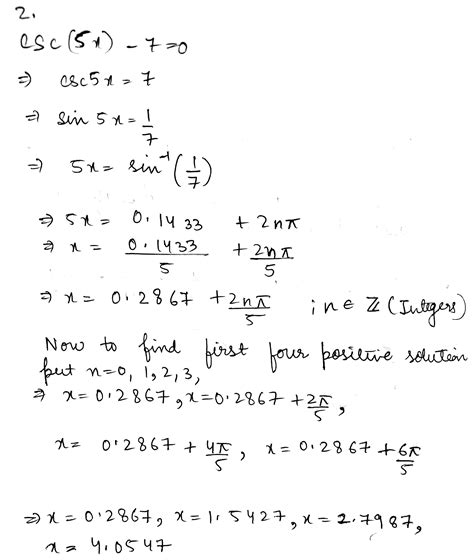 2.
csc(5x) - 7=0
⇒ csc5x = 7
⇒ sin 5x = 1/7
⇒ 5x = sin⁻¹(1/7)
⇒ 5x = 0.1433 + 2nπ
⇒ x = 0.1433/5 + 2nπ/5
⇒ x = 0.2867 + 2nπ/5 ; n ∈ ℤ (Integers)
Now to find first four positive solution
put n=0, 1, 2, 3,
⇒ x=0.2867, x=0.2867 + 2π/5,
x= 0.2867 + 4π/5, x= 0.2867 + 6π/5
⇒ x = 0.2867, x=1.5427, x=2.7987,
x= 4.0547